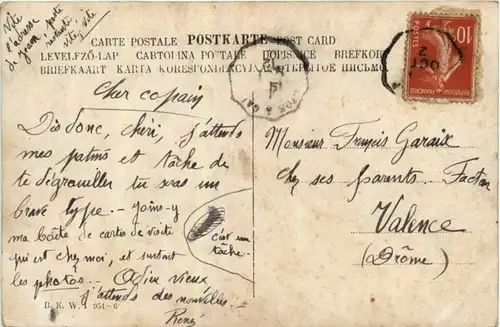 Vite
l'adresse
de Jean poste
restante
vite, vite
CARTE POSTALE POSTKARTE POST CARD
LEVELEZŐ-LAP CARTOLINA POSTALE DOPISNICE BREFKORT
BRIEFKAART KARTA KORESPONDENCYJNA
10
POSTES
OCT
2
Cher copain
Dis donc, chéri, j'attends
mes patins et tâche de
te dégrouiller tu seras un
brave type. - joins-y
ma boîte de cartes de visite
qui est chez moi, et surtout
les photos... Adieu vieux
j'attends des nouvelles
René
c'est une
tache.
Monsieur François Garaix
chez ses parents Facteur
Valence
(Drôme)
B. K. W. I. 951-6